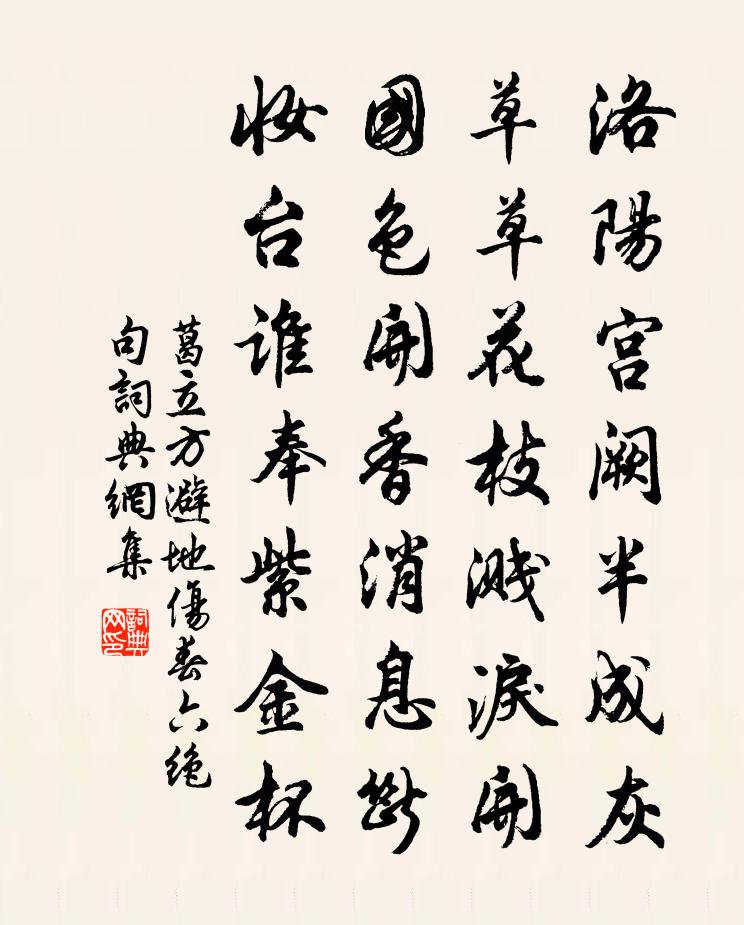 洛陽宫阙半成灰
草草花枝溅淚開
國色開香消息斷
妝台誰奉紫金杯
葛立方避地傷春六絶
句詞典網集
詞典网印